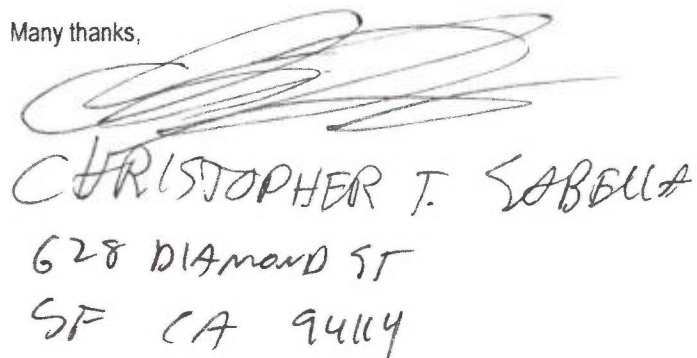 Many thanks,
CHRISTOPHER T. SABELLA
628 DIAMOND ST
SF CA 94114